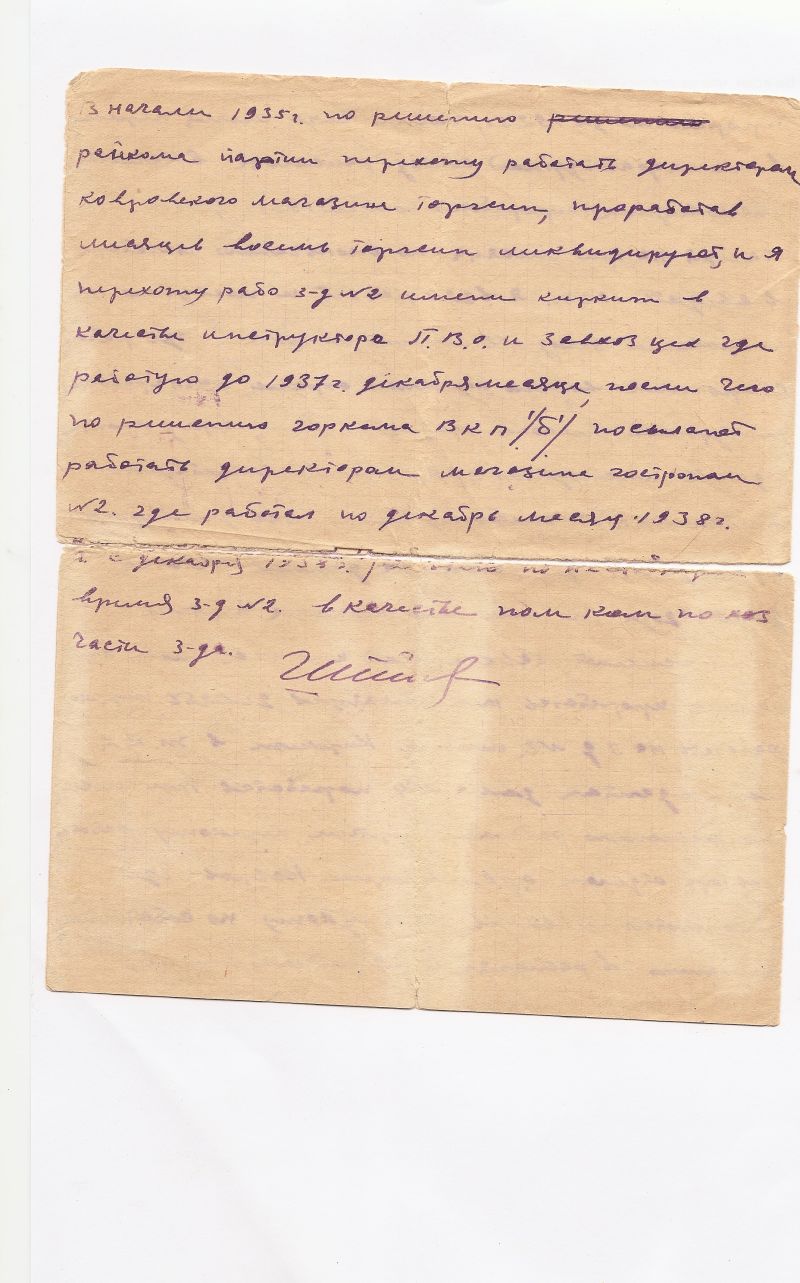 В начали 1935г. по решению решению
райкома партии перехожу работать директором
ковровского магазина Торгсин, проработав
месяцев восемь Торгсин ликвидируют, и я
перехожу рабо з-д №2 имени киркиж в
качестве инструктора П.В.О. и Завхоз цех где
работую до 1937г. декабря месяца, посли чего
по решению горкома ВКП/б/ посылают
работать директором магазина гострономом
№2. где работал по декабрь месяц 1938г.
с декабря 193 г. по настоящее
время з-д №2. в качестве пом ком по хоз
части з-да.